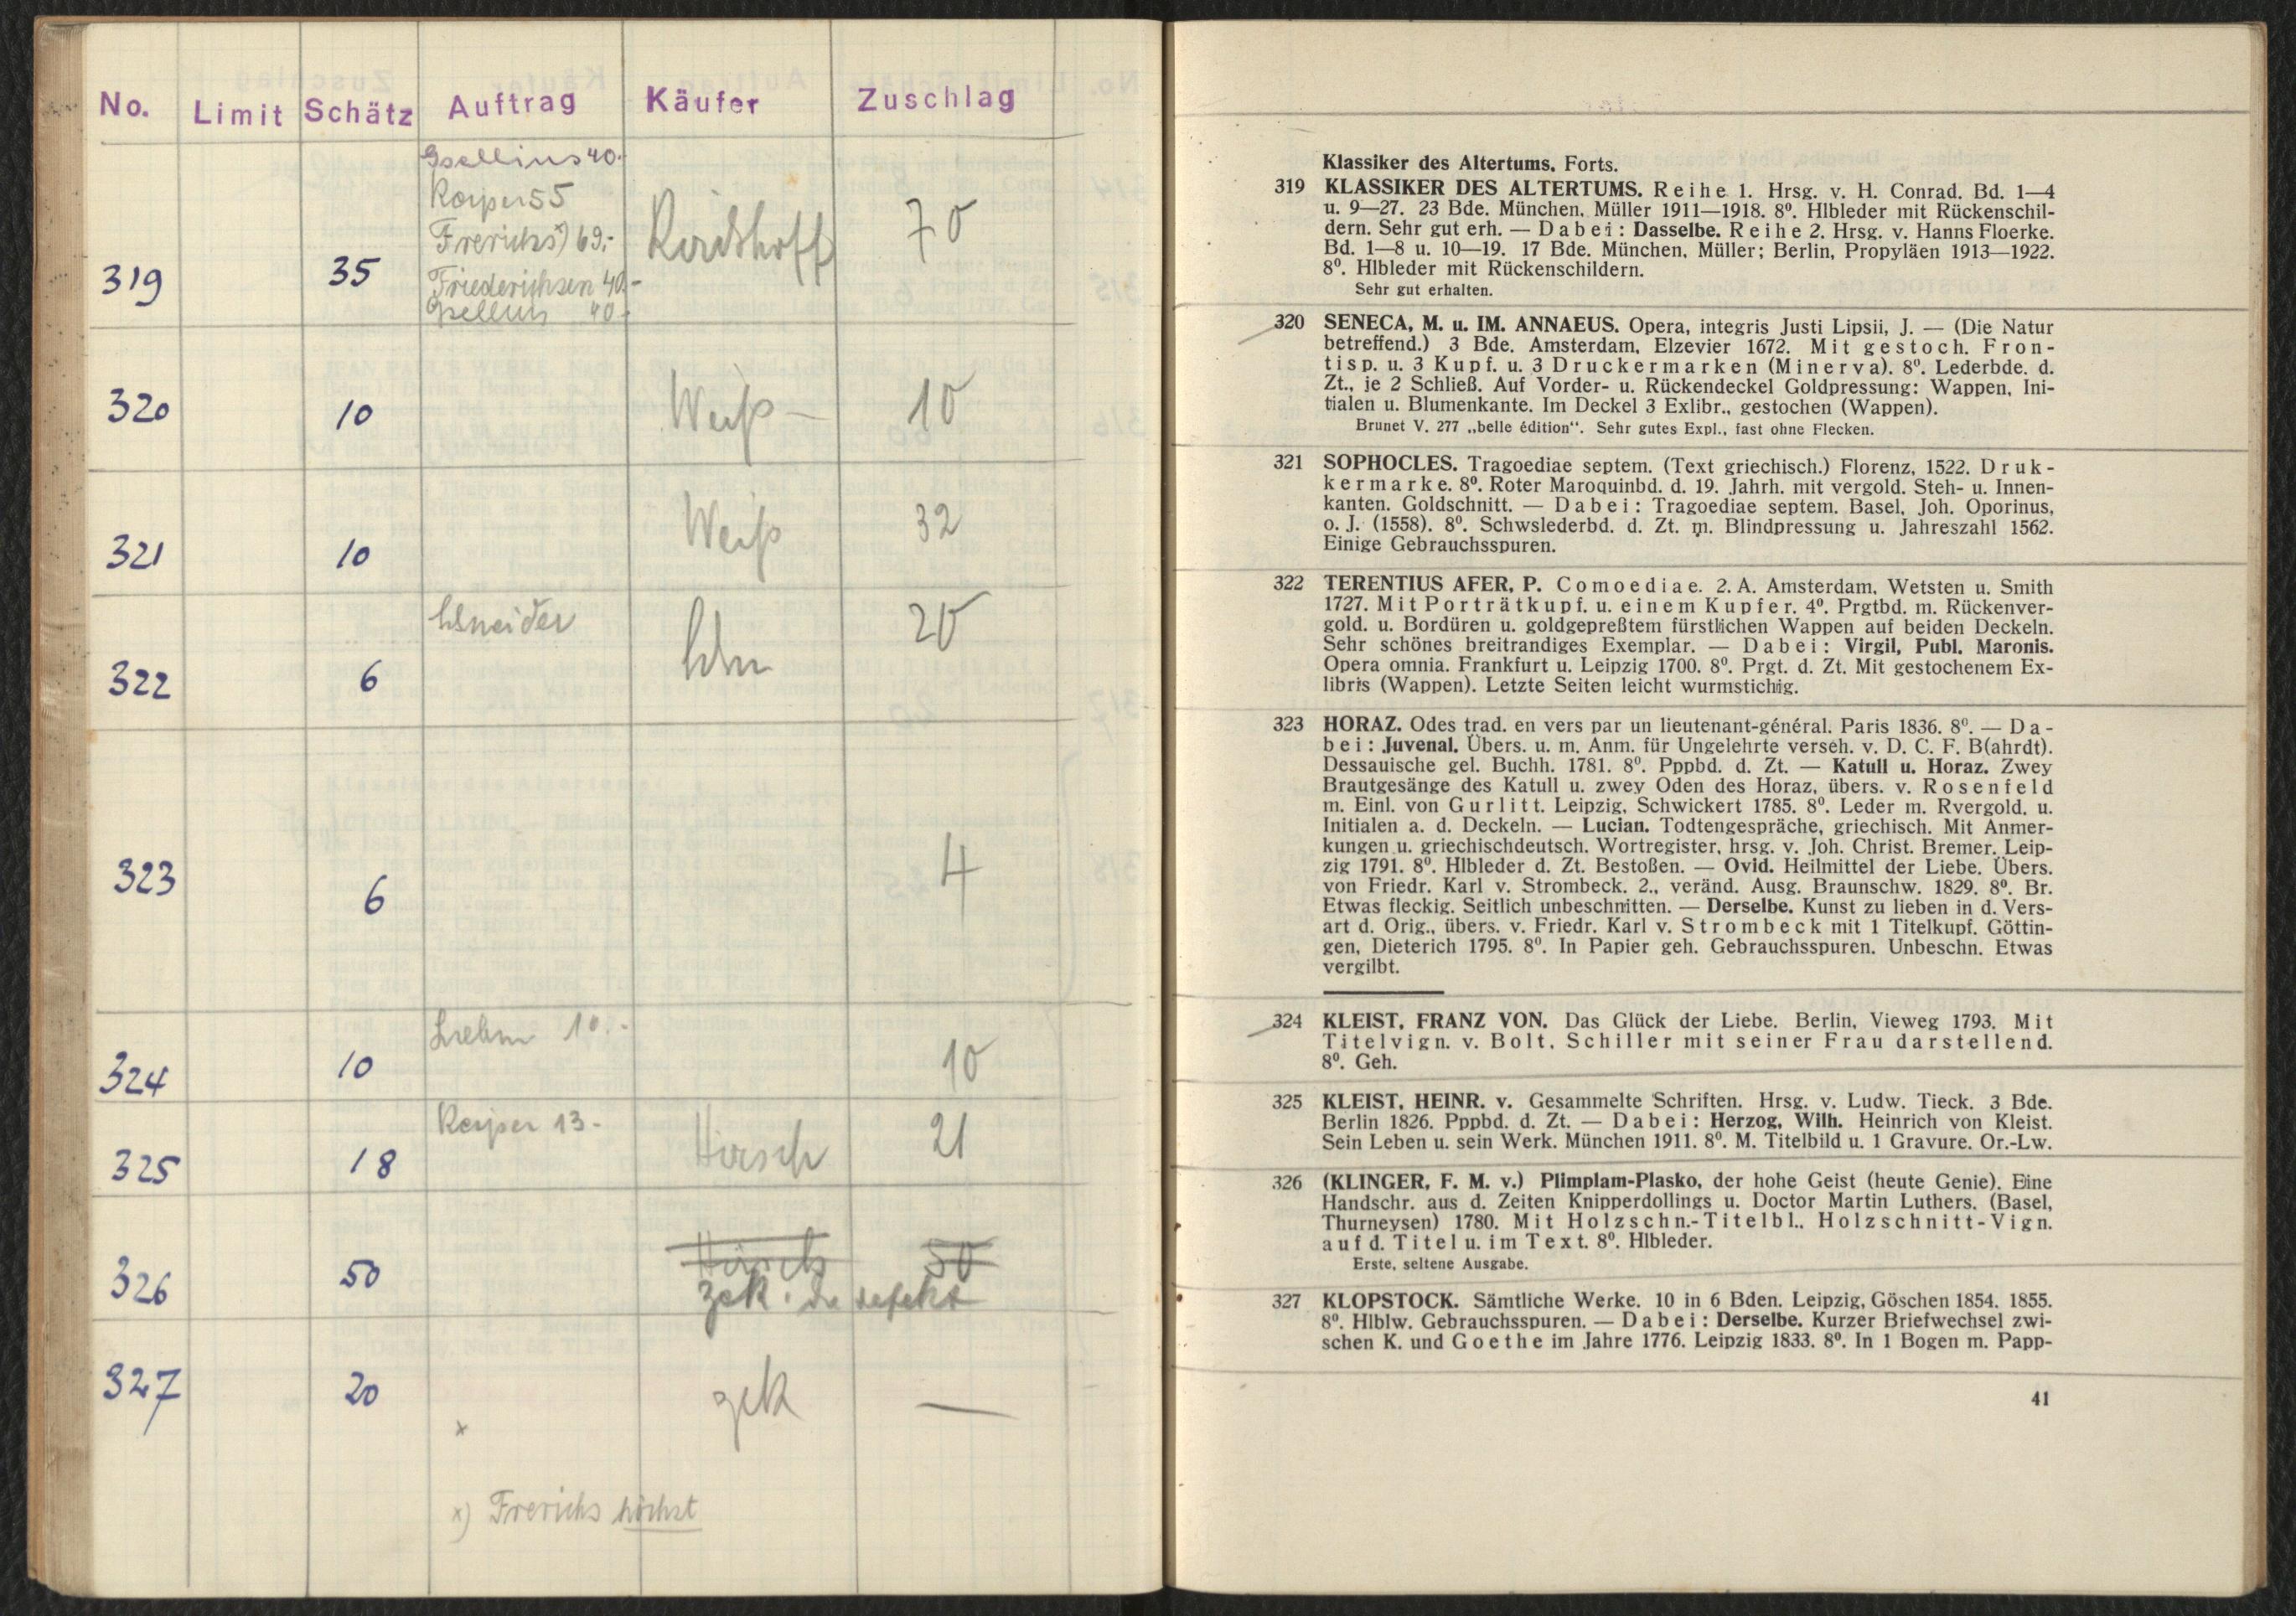 No. Limit Schätz Auftrag Käufer Zuschlag
Gsellius 40.
Kasper 55
Frerichs x) 69.-
319 35 Kirchhoff 70
Friederichsen 40.-
Gsellius 40.-
320 10 Weiß 10
321 10 Weiß 32
Schneider
322 6 20
323 6 4
10.-
324 10 10
13.-
325 18 Hirsch 21
Hirsch 50
326 50 zck. da defekt
327 20 zck —
x
x) Frerichs höchst
Klassiker des Altertums. Forts.
319 KLASSIKER DES ALTERTUMS. Reihe 1. Hrsg. v. H. Conrad. Bd. 1—4
u. 9—27. 23 Bde. München, Müller 1911—1918. 8⁰. Hlbleder mit Rückenschil-
dern. Sehr gut erh. — Dabei: Dasselbe. Reihe 2. Hrsg. v. Hanns Floerke.
Bd. 1—8 u. 10—19. 17 Bde. München, Müller; Berlin, Propyläen 1913—1922.
8⁰. Hlbleder mit Rückenschildern.
Sehr gut erhalten.
320 SENECA, M. u. IM. ANNAEUS. Opera, integris Justi Lipsii, J. — (Die Natur
betreffend.) 3 Bde. Amsterdam, Elzevier 1672. Mit gestoch. Fron-
tisp. u. 3 Kupf. u. 3 Druckermarken (Minerva). 8⁰. Lederbde. d.
Zt., je 2 Schließ. Auf Vorder- u. Rückendeckel Goldpressung: Wappen, Ini-
tialen u. Blumenkante. Im Deckel 3 Exlibr., gestochen (Wappen).
Brunet V. 277 „belle édition“. Sehr gutes Expl., fast ohne Flecken.
321 SOPHOCLES. Tragoediae septem. (Text griechisch.) Florenz, 1522. Druk-
kermarke. 8⁰. Roter Maroquinbd. d. 19. Jahrh. mit vergold. Steh- u. Innen-
kanten. Goldschnitt. — Dabei: Tragoediae septem. Basel, Joh. Oporinus,
o. J. (1558). 8⁰. Schwslederbd. d. Zt. m. Blindpressung u. Jahreszahl 1562.
Einige Gebrauchsspuren.
322 TERENTIUS AFER, P. Comoediae. 2. A. Amsterdam, Wetsten u. Smith
1727. Mit Porträtkupf. u. einem Kupfer. 4⁰. Prgtbd. m. Rückenver-
gold. u. Bordüren u. goldgepreßtem fürstlichen Wappen auf beiden Deckeln.
Sehr schönes breitrandiges Exemplar. — Dabei: Virgil, Publ. Maronis.
Opera omnia. Frankfurt u. Leipzig 1700. 8⁰. Prgt. d. Zt. Mit gestochenem Ex-
libris (Wappen). Letzte Seiten leicht wurmstichig.
323 HORAZ. Odes trad. en vers par un lieutenant-général. Paris 1836. 8⁰. — Da-
bei: Juvenal. Übers. u. m. Anm. für Ungelehrte verseh. v. D. C. F. B(ahrdt).
Dessauische gel. Buchh. 1781. 8⁰. Pppbd. d. Zt. — Katull u. Horaz. Zwey
Brautgesänge des Katull u. zwey Oden des Horaz, übers. v. Rosenfeld
m. Einl. von Gurlitt. Leipzig, Schwickert 1785. 8⁰. Leder m. Rvergold. u.
Initialen a. d. Deckeln. — Lucian. Todtengespräche, griechisch. Mit Anmer-
kungen u. griechischdeutsch. Wortregister, hrsg. v. Joh. Christ. Bremer. Leip-
zig 1791. 8⁰. Hlbleder d. Zt. Bestoßen. — Ovid. Heilmittel der Liebe. Übers.
von Friedr. Karl v. Strombeck. 2., veränd. Ausg. Braunschw. 1829. 8⁰. Br.
Etwas fleckig. Seitlich unbeschnitten. — Derselbe. Kunst zu lieben in d. Vers-
art d. Orig., übers. v. Friedr. Karl v. Strombeck mit 1 Titelkupf. Göttin-
gen, Dieterich 1795. 8⁰. In Papier geh. Gebrauchsspuren. Unbeschn. Etwas
vergilbt.
324 KLEIST, FRANZ VON. Das Glück der Liebe. Berlin, Vieweg 1793. Mit
Titelvign. v. Bolt, Schiller mit seiner Frau darstellend.
8⁰. Geh.
325 KLEIST, HEINR. v. Gesammelte Schriften. Hrsg. v. Ludw. Tieck. 3 Bde.
Berlin 1826. Pppbd. d. Zt. — Dabei: Herzog, Wilh. Heinrich von Kleist.
Sein Leben u. sein Werk. München 1911. 8⁰. M. Titelbild u. 1 Gravure. Or.-Lw.
326 (KLINGER, F. M. v.) Plimplam-Plasko, der hohe Geist (heute Genie). Eine
Handschr. aus d. Zeiten Knipperdollings u. Doctor Martin Luthers. (Basel,
Thurneysen) 1780. Mit Holzschn.-Titelbl., Holzschnitt-Vign.
auf d. Titel u. im Text. 8⁰. Hlbleder.
Erste, seltene Ausgabe.
327 KLOPSTOCK. Sämtliche Werke. 10 in 6 Bden. Leipzig, Göschen 1854. 1855.
8⁰. Hlblw. Gebrauchsspuren. — Dabei: Derselbe. Kurzer Briefwechsel zwi-
schen K. und Goethe im Jahre 1776. Leipzig 1833. 8⁰. In 1 Bogen m. Papp-
41